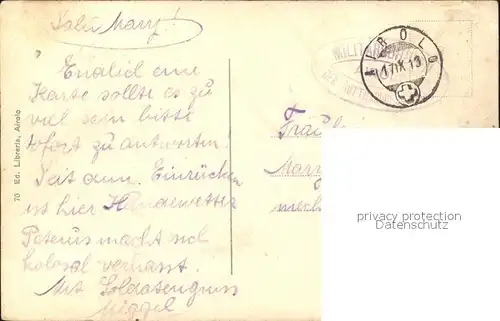 Salü Mary!
Endlich eine
Karte sollte es zu
viel sein bitte
sofort zu antworten!
Seit dem Einrücken
ist hier Hundewetter
Peterus macht sich
kolosal verhasst.
Mit Soldatengruss
70 Ed. Libreria, Airolo
MILITÄR
AIROLO
17.IX.13
Fräul
Mary
privacy protection
watermark